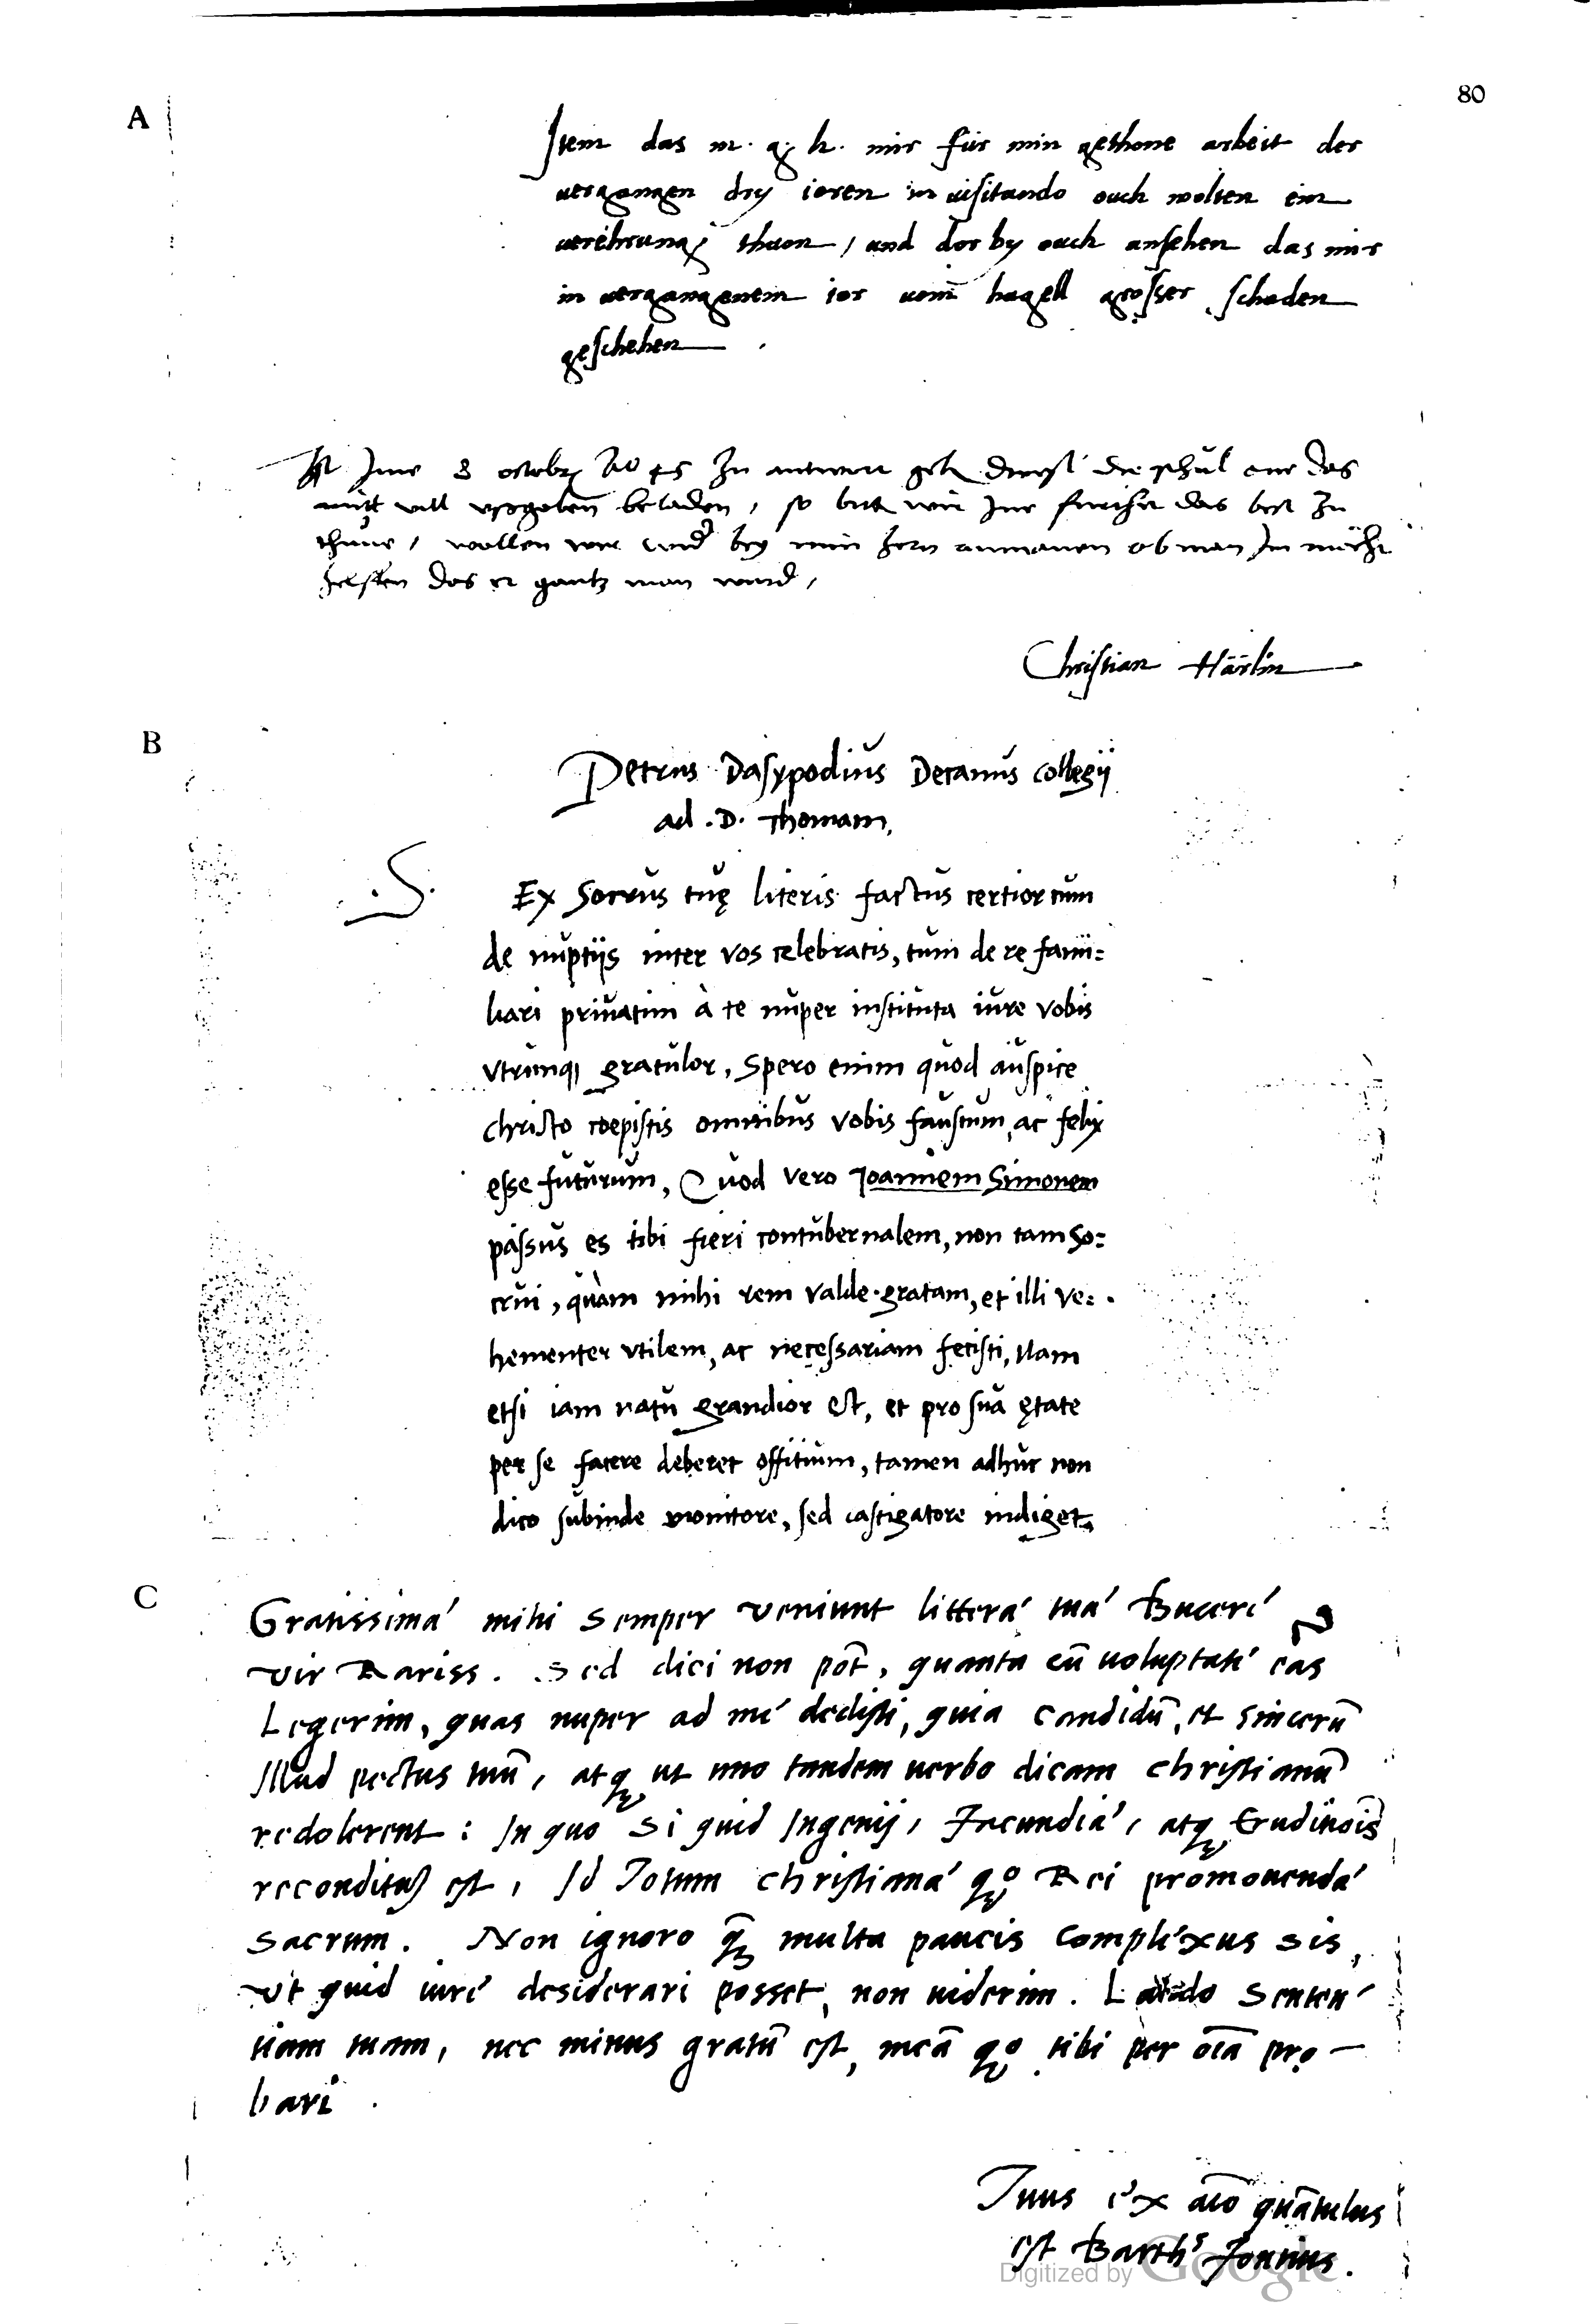 80
A
Item das m. g. h. mir für min gethone arbeit der
vergangen dry ioren in visitando ouch wolten ein
verehrung thuon, und dorby ouch ansehen das mir
in vergangenem ior vom̄ hagell grosser schaden
geschehen.
Ist Ime 8 octobr̨ A⁰ 45 zu antwort geben diewyl die schul one das
mitt vill ussgoben beladen, so bitt wir Ine further das best zu
thune, wollen wir wider bey min hern anmanen ob man Im möcht
helffen das er gantz man wurd,
Christian Härlin
B
Petrus Dasypodius Decanus Collegij
ad .D. Thomam.
.S. Ex Socrus tuę literis factus certior cum
de nuptijs inter vos celebratis, tum de re fami=
liari priuatim à te nuper instituta iure vobis
vtrinq₃ gratulor, Spero enim quod auspice
Christo coepistis omnibus vobis faustum, ac felix
esse futurum, Quod vero Joannem Simonem
passus es tibi fieri contubernalem, non tam so=
crui, quàm mihi rem valde gratam, et illi ve=
hementer vtilem, ac necessariam fecisti, Nam
etsi iam natu grandior est, et pro sua ętate
per se facere deberet offitium, tamen adhuc non
dico subinde monitore, sed castigatore indiget.
C
Gratissimę mihi semper veniunt litterę tuę Bucere
vir Rariss. Sed dici non pot̄, quanta cū uoluptate eas
Legerim, quas nuper ad me dedisti, quia candidū, et sincerū
Illud pectus tuū, atq₃ ut uno tandem uerbo dicam christianū
redolerent: In quo si quid Ingenij, Facundię, atq₃ Eruditiōis
reconditū est, Id Totum christianę q₃ Rei promouendę
sacrum. Non ignoro q̄₃ multa paucis complexus sis,
Vt quid iure desiderari posset, non uiderim. Laudo senten
tiam tuam, nec minus gratū est, meā q₃ tibi per oīa pro—
bari.
Tuus ex aīo quātulus
est Barthˢ Fontius.
Digitized by Google